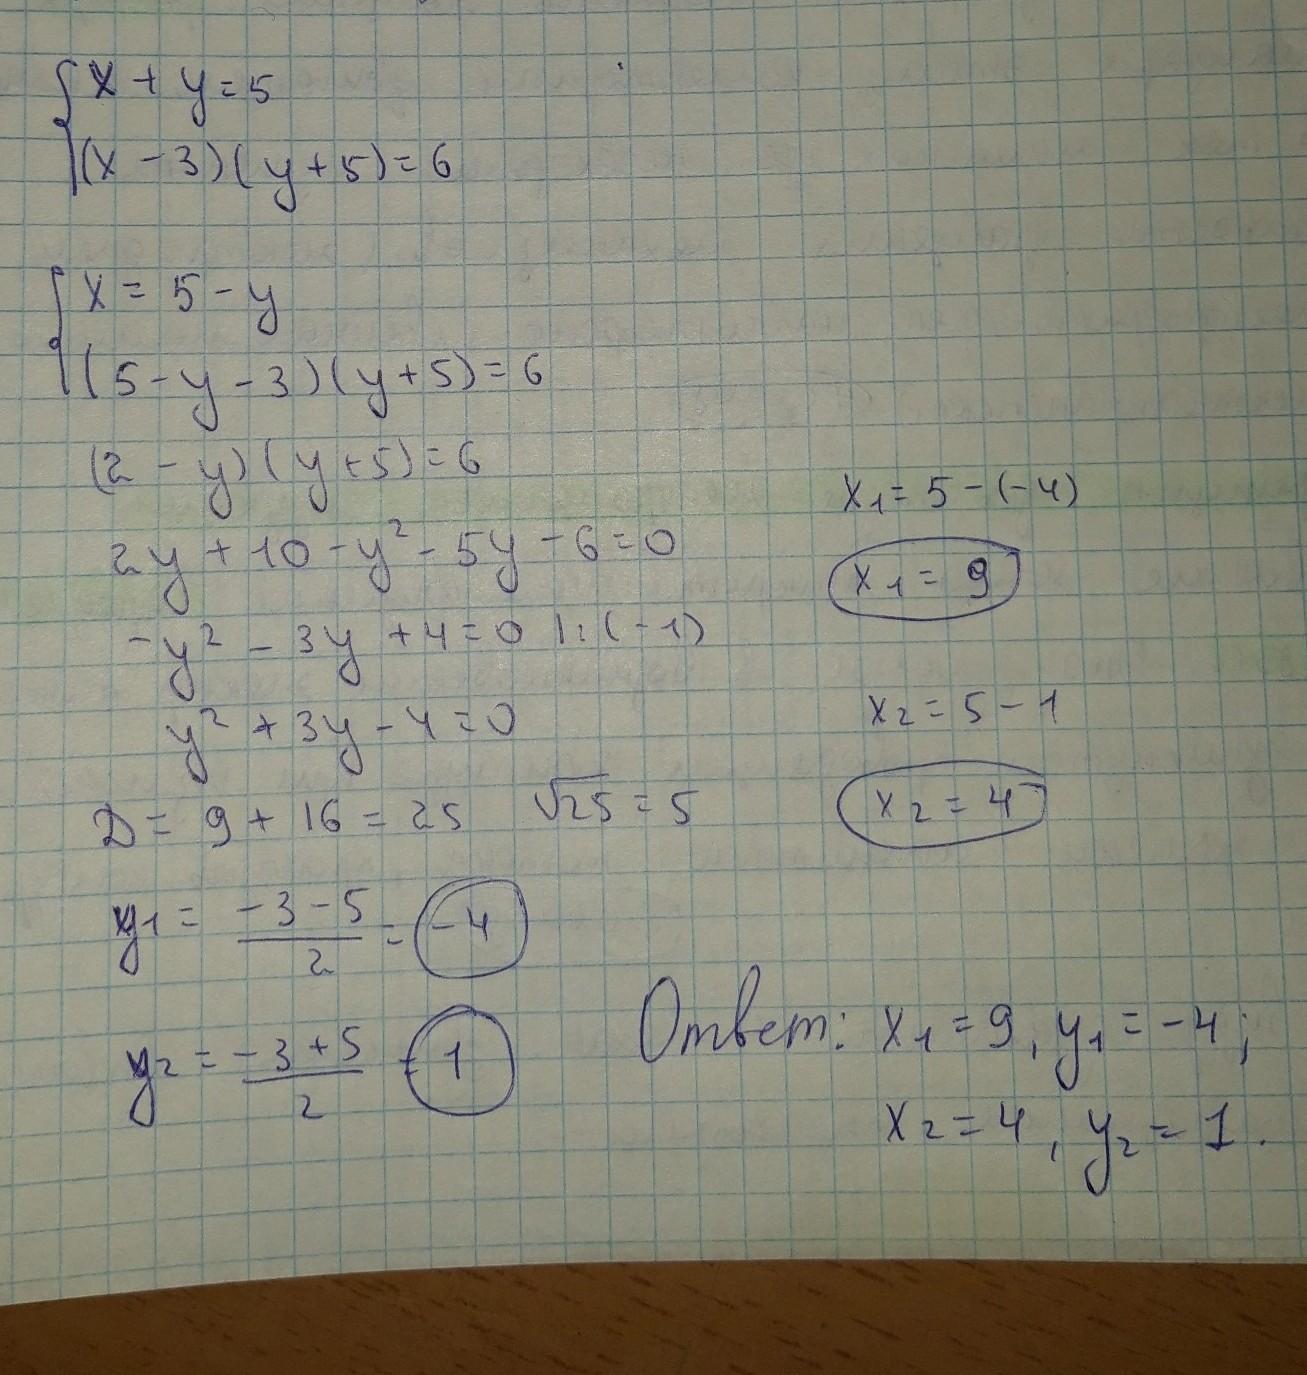 x + y = 5
(x - 3)(y + 5) = 6
x = 5 - y
(5 - y - 3)(y + 5) = 6
(2 - y)(y + 5) = 6
2y + 10 - y² - 5y - 6 = 0
-y² - 3y + 4 = 0 |:(-1)
y² + 3y - 4 = 0
D = 9 + 16 = 25 √25 = 5
y₁ = (-3 - 5)/2 = -4
y₂ = (-3 + 5)/2 = 1
x₁ = 5 - (-4)
x₁ = 9
x₂ = 5 - 1
x₂ = 4
Ответ: x₁ = 9, y₁ = -4;
x₂ = 4, y₂ = 1.